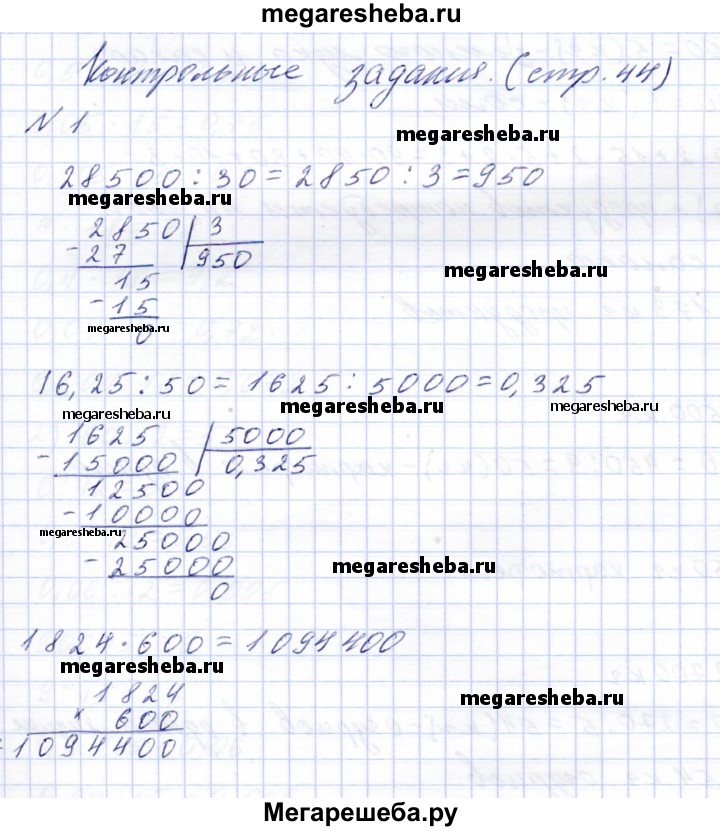 megaresheba.ru
Контрольные задания. (стр. 44)
№ 1
megaresheba.ru
28500 : 30 = 2850 : 3 = 950
megaresheba.ru
2850 | 3
- 27 950
megaresheba.ru
15
- 15
megaresheba.ru 0
16,25 : 50 = 1625 : 5000 = 0,325
megaresheba.ru megaresheba.ru megaresheba.ru
1625 | 5000
- 15000 0,325
12500
- 10000
megaresheba.ru 25000
- 25000
megaresheba.ru
0
1824 · 600 = 1094400
megaresheba.ru
1824
megaresheba.ru
x 600
1094400
Мегарешеба.ру